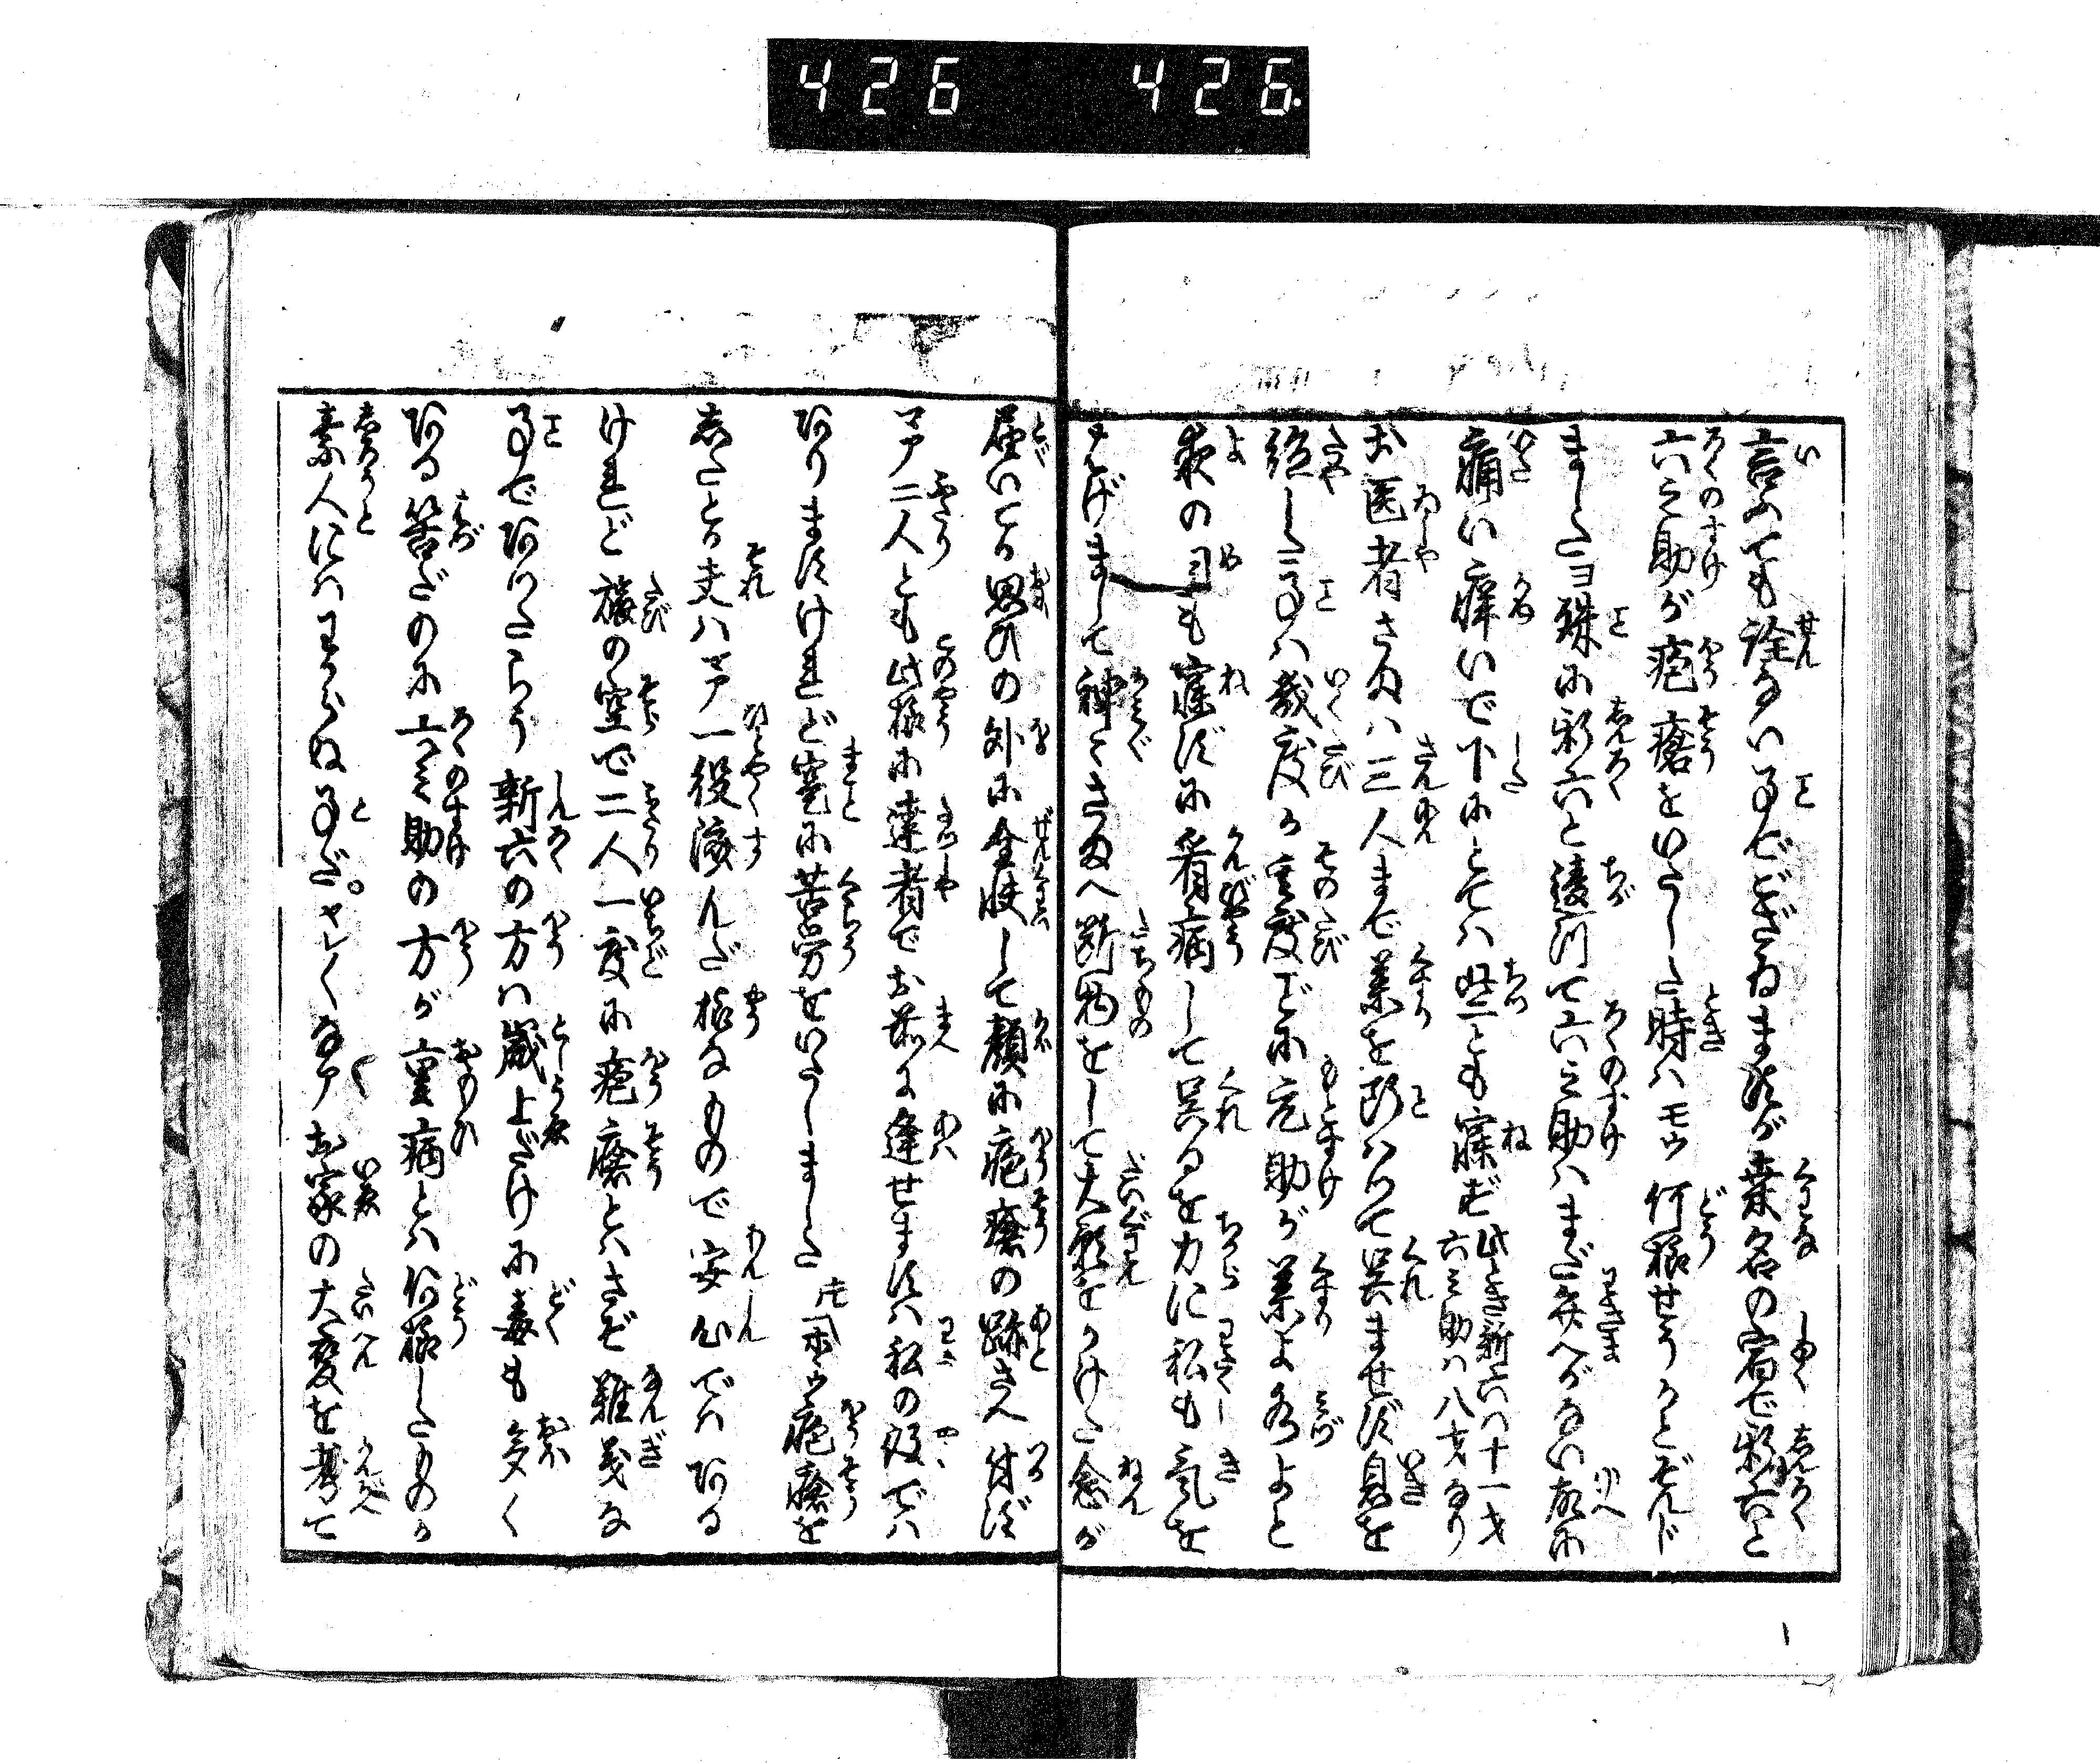 426 426.
言ふても詮ないことでござゐますが桒名の宿で新六と
六之助が疱瘡をいたした時ハモウ何様せうかとぞんじ
ましたヨ殊に新六と違つて六之助ハまだ弁へがない故に
痛い痒いで下にとてハ些とも寐ず此とき新六ハ十一才六之助ハ八才なり
お医者さまハ三人まで薬を断ハつて呉ませず息を
絶した事ハ幾度か其度ごに元助が薬よ水よと
夜の目も寐ずに看病して呉るを力に私も気を
はげまして神々さまへ断物をして大願をかけた念が
届いたか思ひの外に全快して顔に疱瘡の跡さへ付ず
マア二人とも此様に達者でお前に逢せますハ私の役でハ
ありますけれど寔に苦労をいたしました 疱瘡を
したとか夫ハマア一役済んだ様なもので安心でハある
けれど旅の空で二人一度に疱瘡とハさぞ難義な
事であつたらう新六の方ハ歳上だけに毒も多く
ある筈だのに六之助の方が重病とハ何様したものか
素人にハわからぬ事だ。ヤレ〳〵なアお家の大変を考て